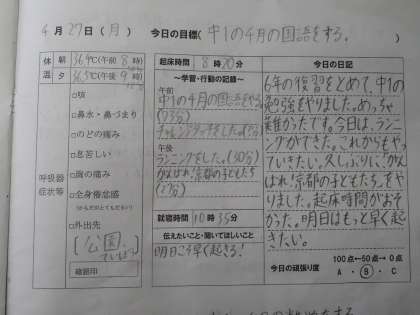 4月27日(月) 今日の目標(中1の4月の国語をする。)
体温 朝 36.4℃(午前8時)
夕 36.5℃(午後9時)
呼吸器症状等
□咳
□鼻水・鼻づまり
□のどの痛み
□息苦しい
□胸の痛み
□全身倦怠感
□外出先
[公園、]
確認印
起床時間 8時20分
～学習・行動の記録～
午前
中1の4月の国語をやる。
チャレンジタッチをした。
午後
ランニングをした。(30分)
がんばれ!京都の子どもたち
就寝時間 10時35分
伝えたいこと・聞いてほしいこと
明日こそ早く起きる!
今日の日記
6年の復習をとめて、中1の
勉強をやりました。めっちゃ
難かったです。今日は、ランニ
ングができた。これからもやっ
ていきたい。久しぶりに「がんば
れ!京都の子どもたち」をや
りました。起床時間がおそ
かった。明日はもっと早く起
きたい。
今日の頑張り度
100点←50点→0点
A・B・C